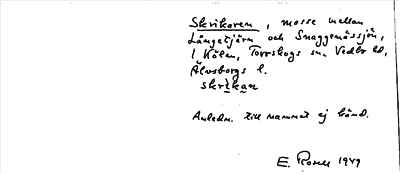 Skrikaren, mosse mellan
Långetjärn och Snaggemåssjön,
i Kölen, Torrskogs sn. Vedbo hd,
Älvsborgs l.
skrikan
Anledn. till namnet ej känd.
E. Rosell 1949